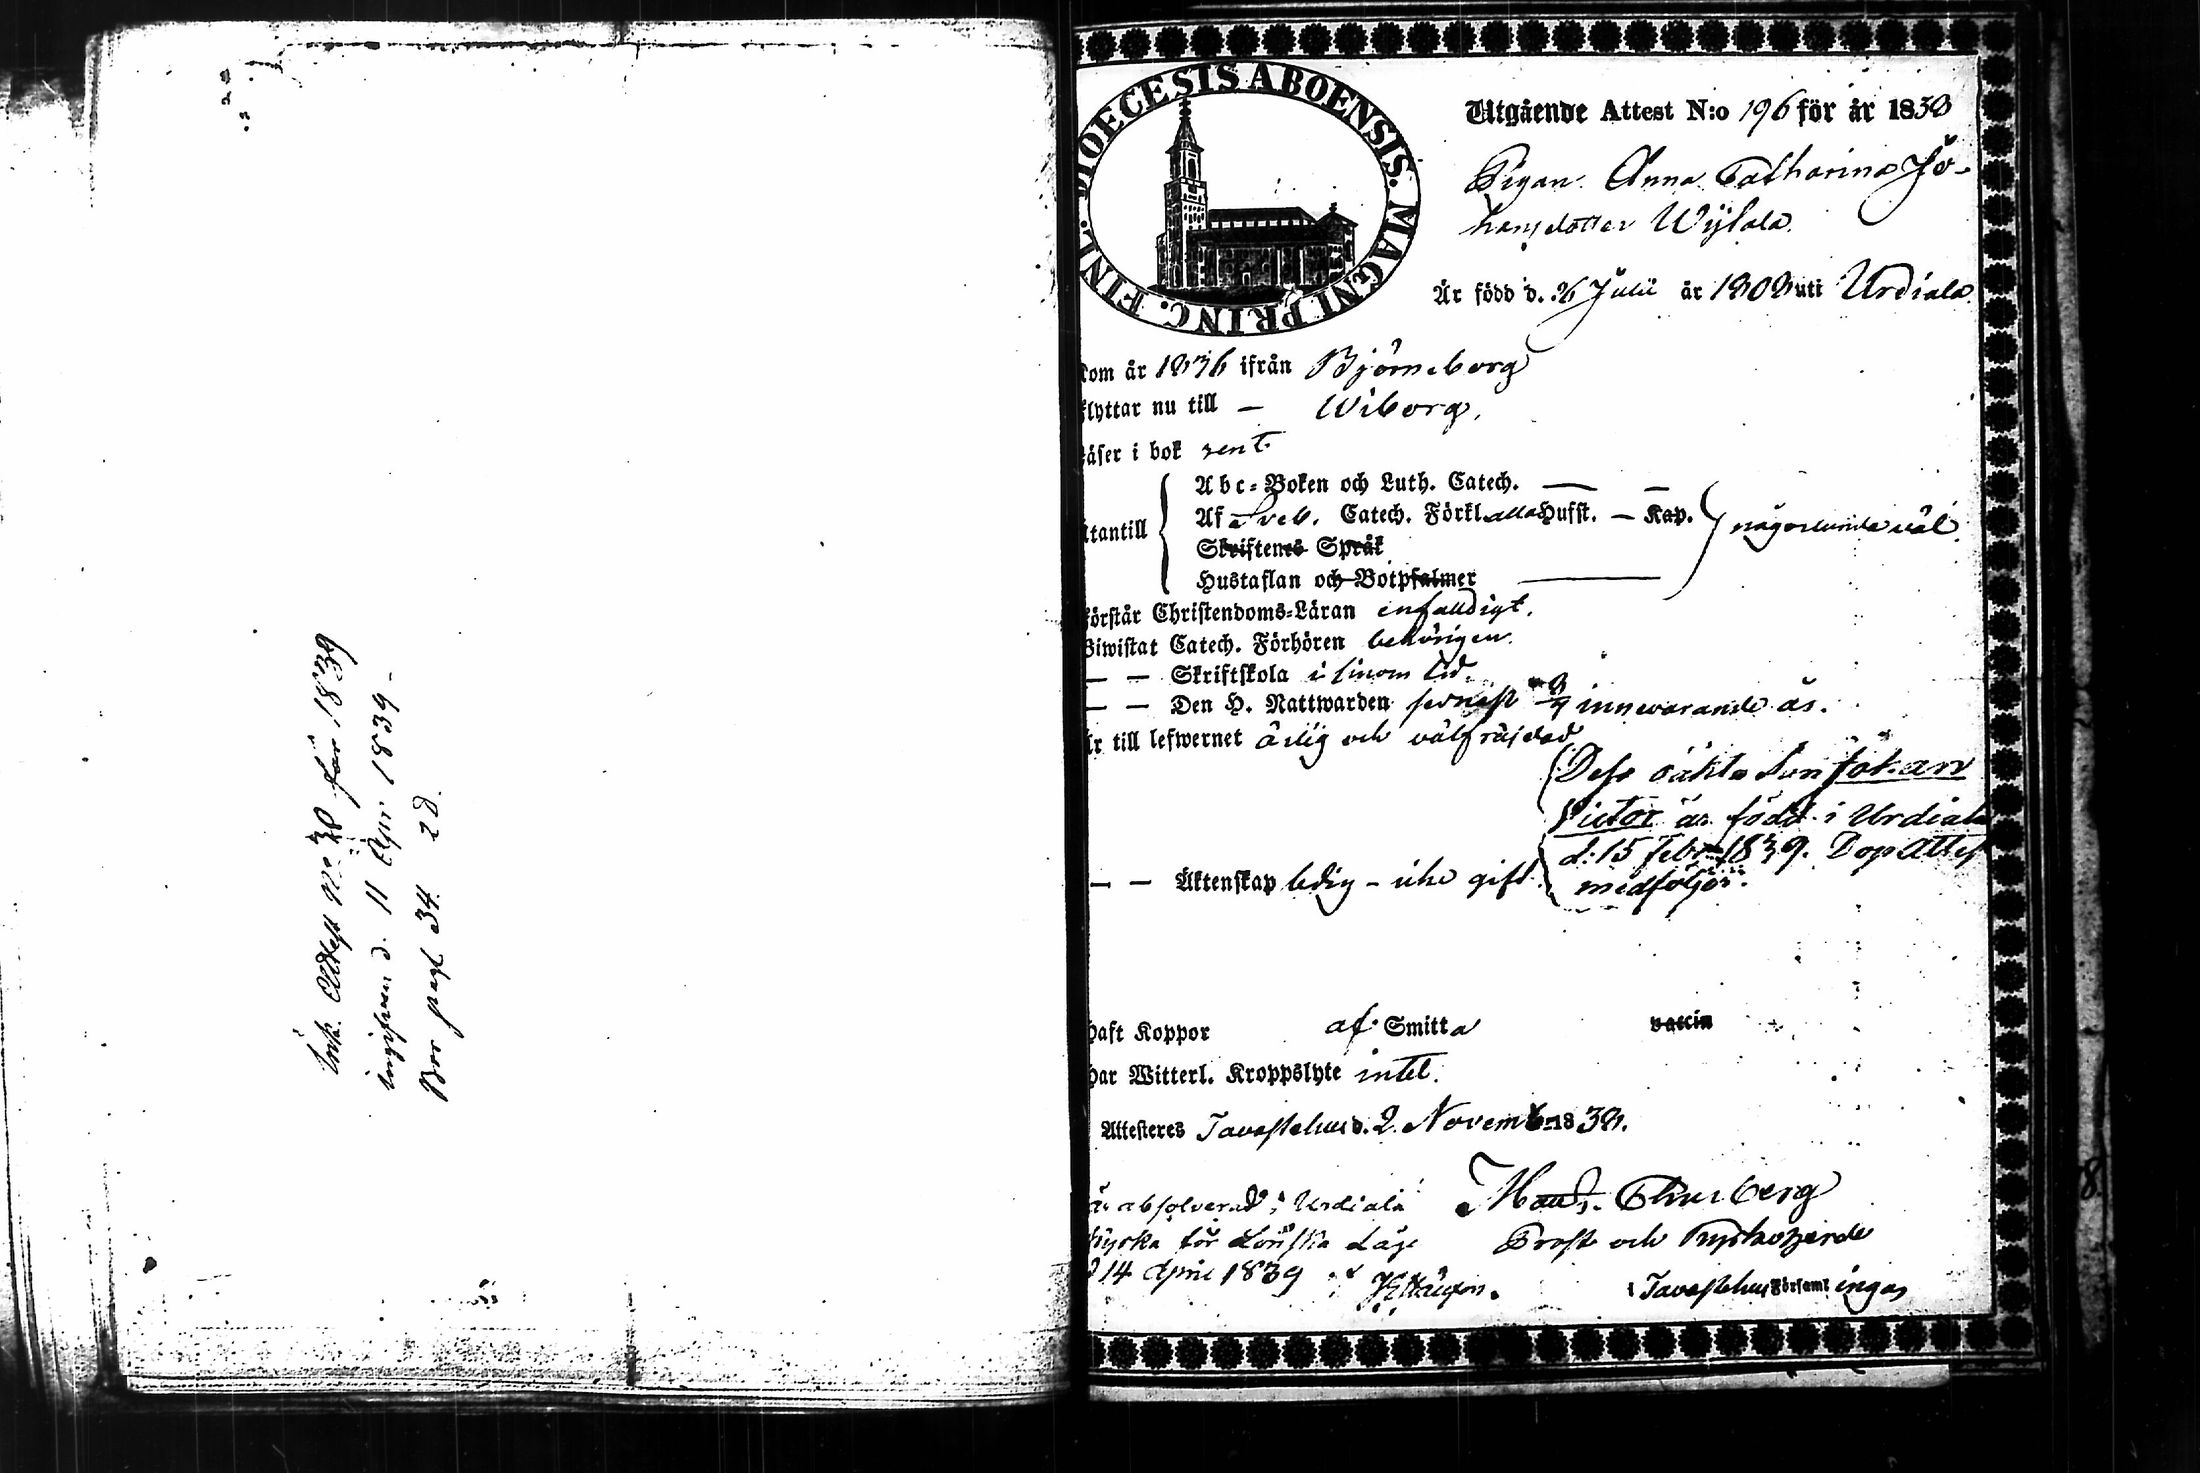 Ink. Attest No 30 för 1839
ingifven d. 11 Apr 1839 -
Bor pagt 34. 2d.
DIOECESIS ABOENSIS. MAGNI PRINC. FINL.
Utgående Attest N:o 196 för år 1838
Pigan Anna Catharina Jo-
hansdotter Wijlala.
Är född d. 26 Julii år 1808 uti Urdiala
kom år 1836 ifrån Björneborg
flyttar nu till — Wiborg.
läser i bok rent
Abc-Boken och Luth. Catech. — —
Utantill Af Sveb. Catech. Förkl. alla Hufst. — Kap. någorlunda väl.
Skriftenes Språk
Hustaflan och Botpsalmer —
förstår Christendoms-Läran enfaldigt.
Biwistat Catech. Förhören behörigen.
— — Skriftskola i sinom tid.
— — Den H. Nattwarden senast innevarande år.
är till lefwernet ärlig och välfräjdad
(Dess oäkta Son Johan
Victor är född i Urdiala
d: 15 Febr 1839. Dop Attest
— — Äktenskap ledig - icke gift. medföljer.
haft Koppor af Smitta vaccin
har Witterl. Kroppslyte intet.
Attesteres Tavastehus d. 2 Novemb. 1838.
är absolverad i Urdiala
Kyrka för Lönska Läge
d 14 April 1839
Thurberg
Prost och Kyrkoherde
i Tavastehus Församl ingar